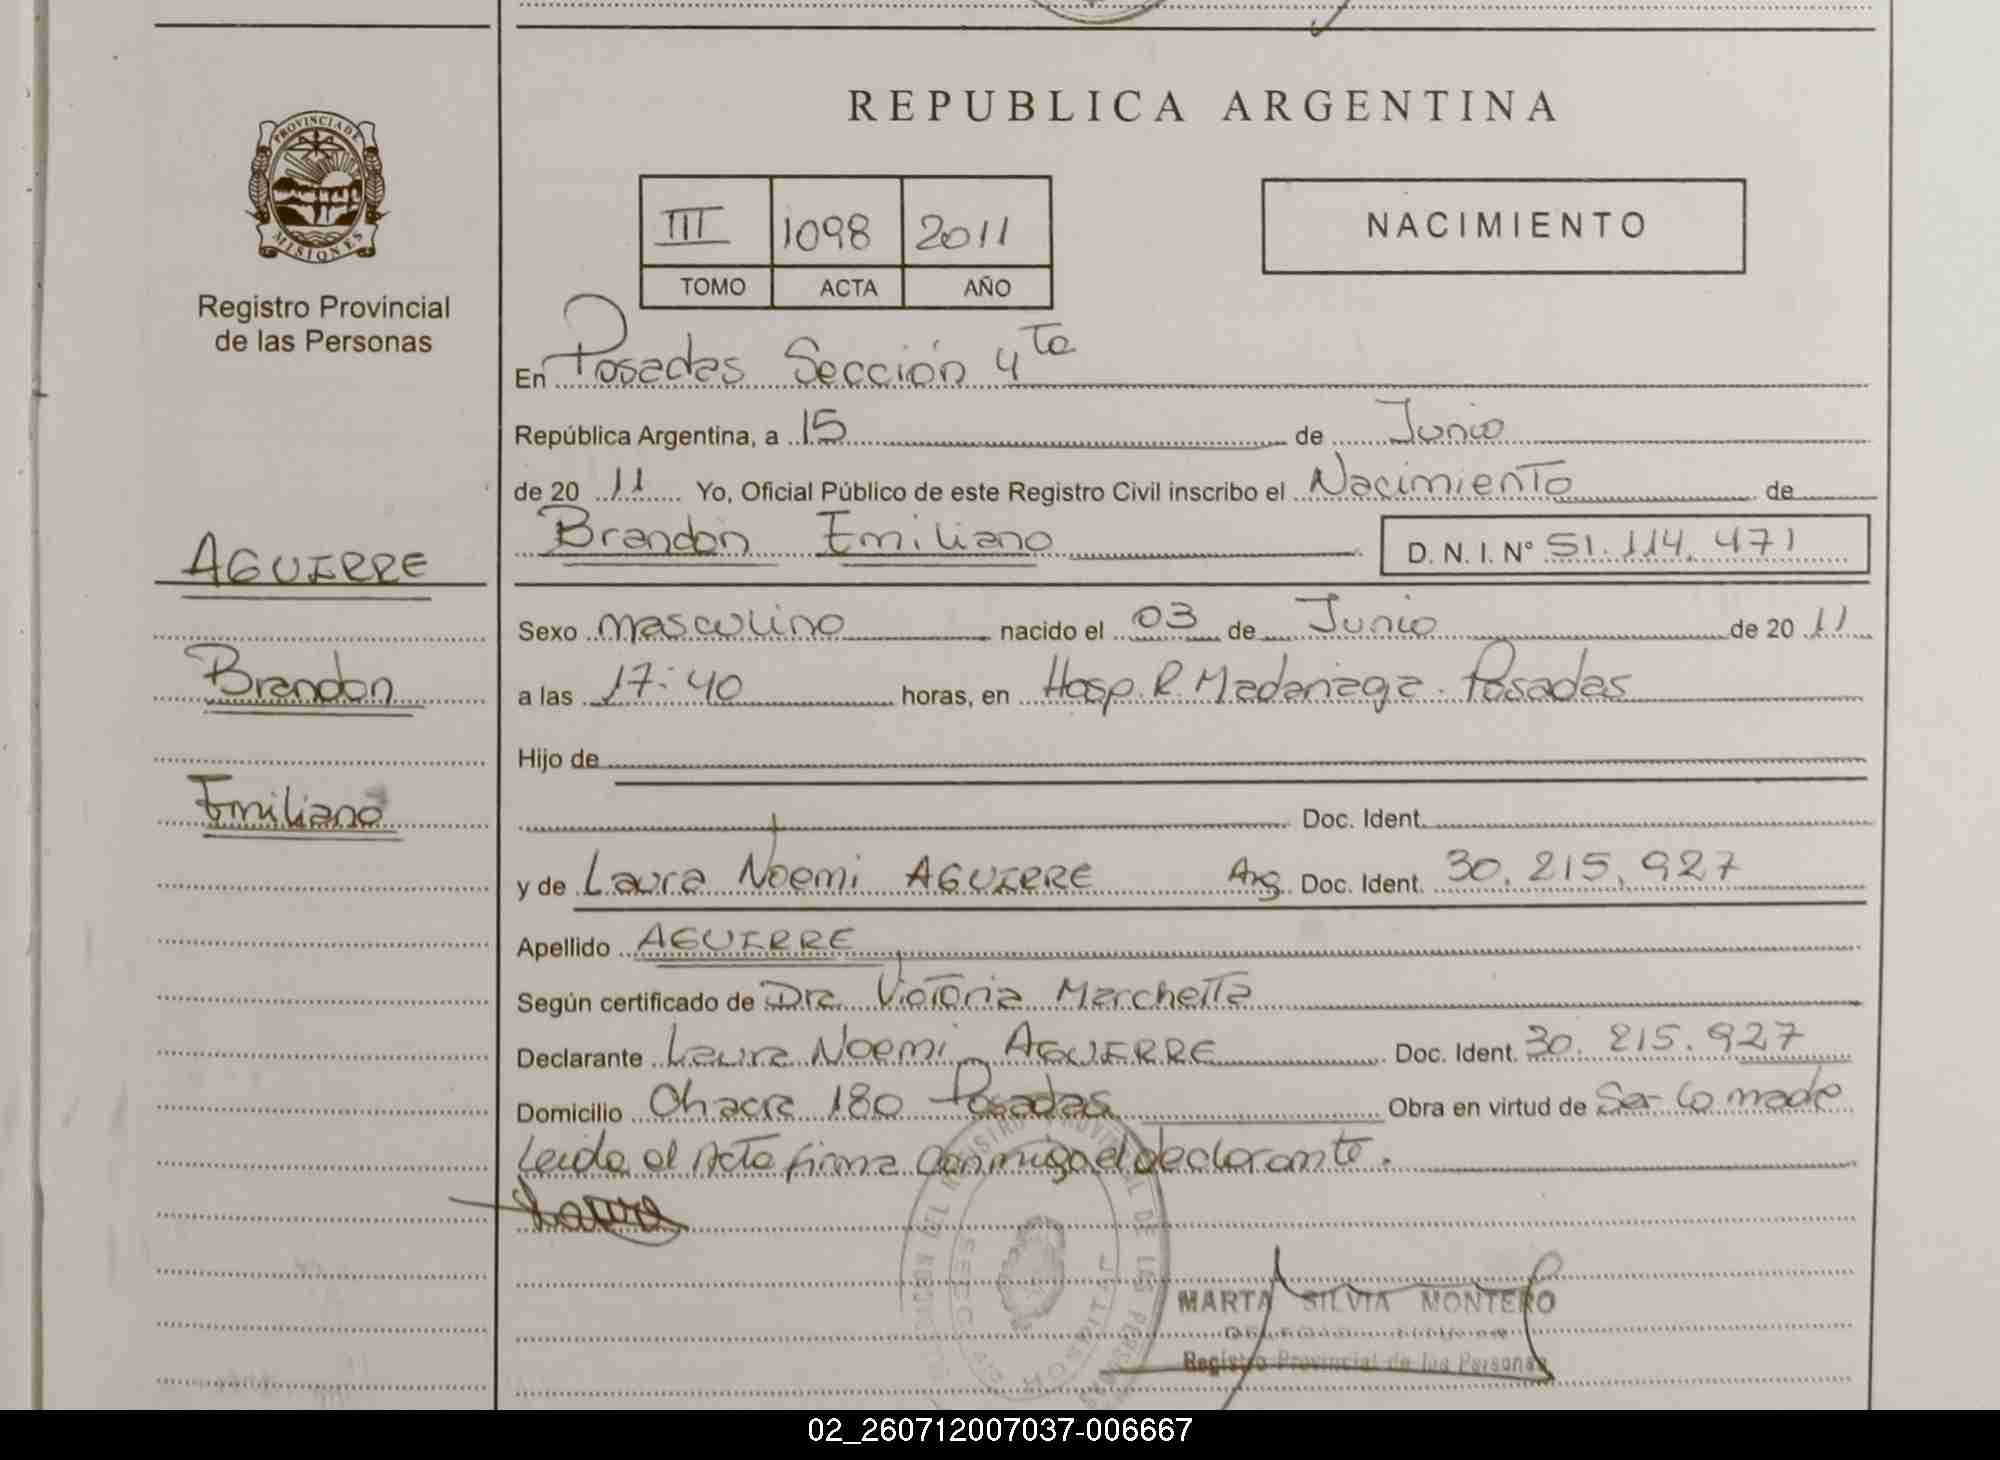 REPUBLICA ARGENTINA
PROVINCIA DE
MISIONES
Registro Provincial
de las Personas
III 1098 2011
TOMO ACTA AÑO
NACIMIENTO
En Posadas Sección 4ta
República Argentina, a 15 de Junio
de 20 11 Yo, Oficial Público de este Registro Civil inscribo el Nacimiento de
Brandon Emiliano D. N. I. N° 51.114.471
AGUIRRE
Brandon
Emiliano
Sexo masculino nacido el 03 de Junio de 20 11
a las 17:40 horas, en Hosp. R. Madariaga. Posadas
Hijo de
Doc. Ident.
y de Laura Noemi AGUIRRE Arg. Doc. Ident. 30.215.927
Apellido AGUIRRE
Según certificado de Dra. Victoria Marchetta
Declarante Laura Noemi AGUIRRE Doc. Ident. 30.215.927
Domicilio Chacra 180 Posadas Obra en virtud de Ser la madre
Leida el Acta firma conmigo el declarante.
Laura
MARTA SILVIA MONTERO
Registro Provincial de las Personas
02_260712007037-006667